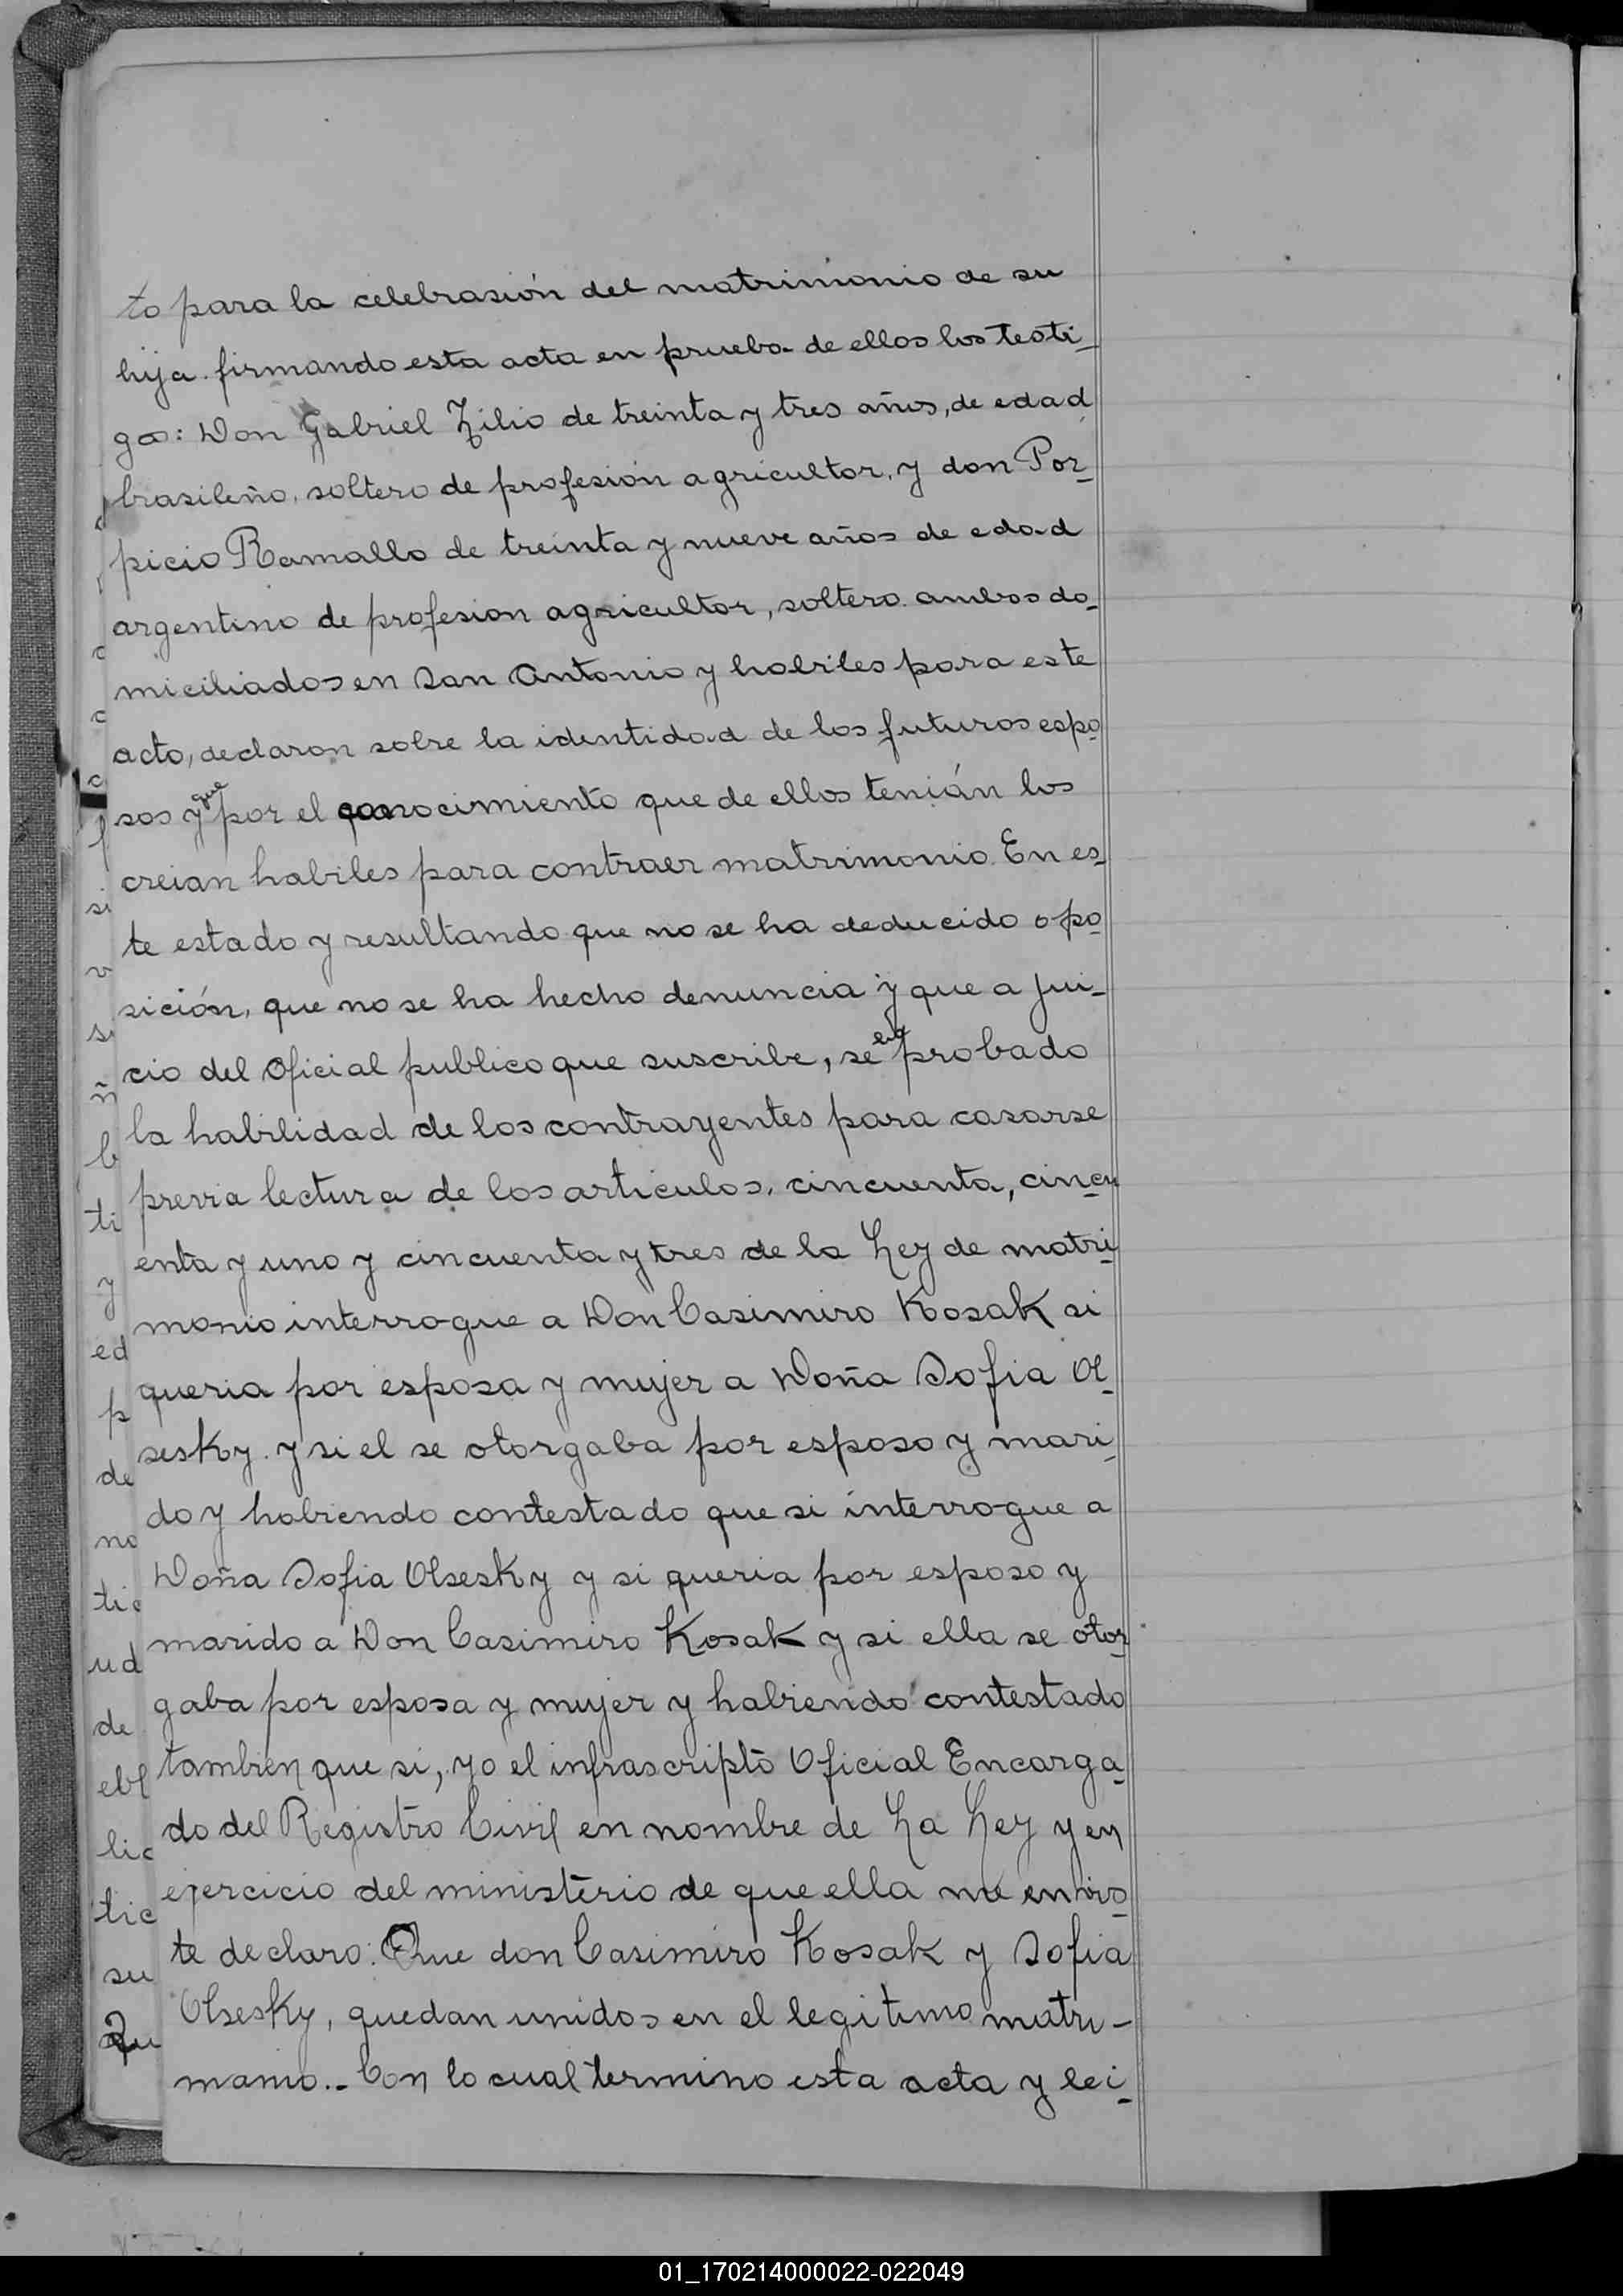 to para la celebrasión del matrimonio de su
hija. firmando esta acta en prueba de ellos los testi-
gos: Don Gabriel Zilio de treinta y tres años, de edad
brasileño, soltero de profesión agricultor, y don Por-
picio Ramallo de treinta y nueve años de edad
argentino de profesion agricultor, soltero ambos do-
miciliados en San Antonio y habiles para este
acto, declaron sobre la identidad de los futuros espo-
sos y que por el conocimiento que de ellos tenián los
creian habiles para contraer matrimonio. En es-
te estado y resultando que no se ha deducido opo-
sición, que no se ha hecho denuncia y que a jui-
cio del Oficial publico que suscribe, se probado
la habilidad de los contrayentes para casarse
previa lectura de los articulos, cincuenta, cincu-
enta y uno y cincuenta y tres de la Ley de matri-
monio interrogue a Don Casimiro Kosak si
queria por esposa y mujer a Doña Sofia Ol-
sesky. y si el se otorgaba por esposo y mari-
do y habiendo contestado que si interrogue a
Doña Sofia Olsesky y si queria por esposo y
marido a Don Casimiro Kosak y si ella se otor-
gaba por esposa y mujer y habiendo contestado
tambien que si, yo el infrascripto Oficial Encarga-
do del Registro Civil en nombre de La Ley y en
ejercicio del ministerio de que ella me envis-
te declaro: Que don Casimiro Kosak y Sofia
Olsesky, quedan unidos en el legitimo matri-
manio.- Con lo cual termino esta acta y lei-
01_170214000022-022049